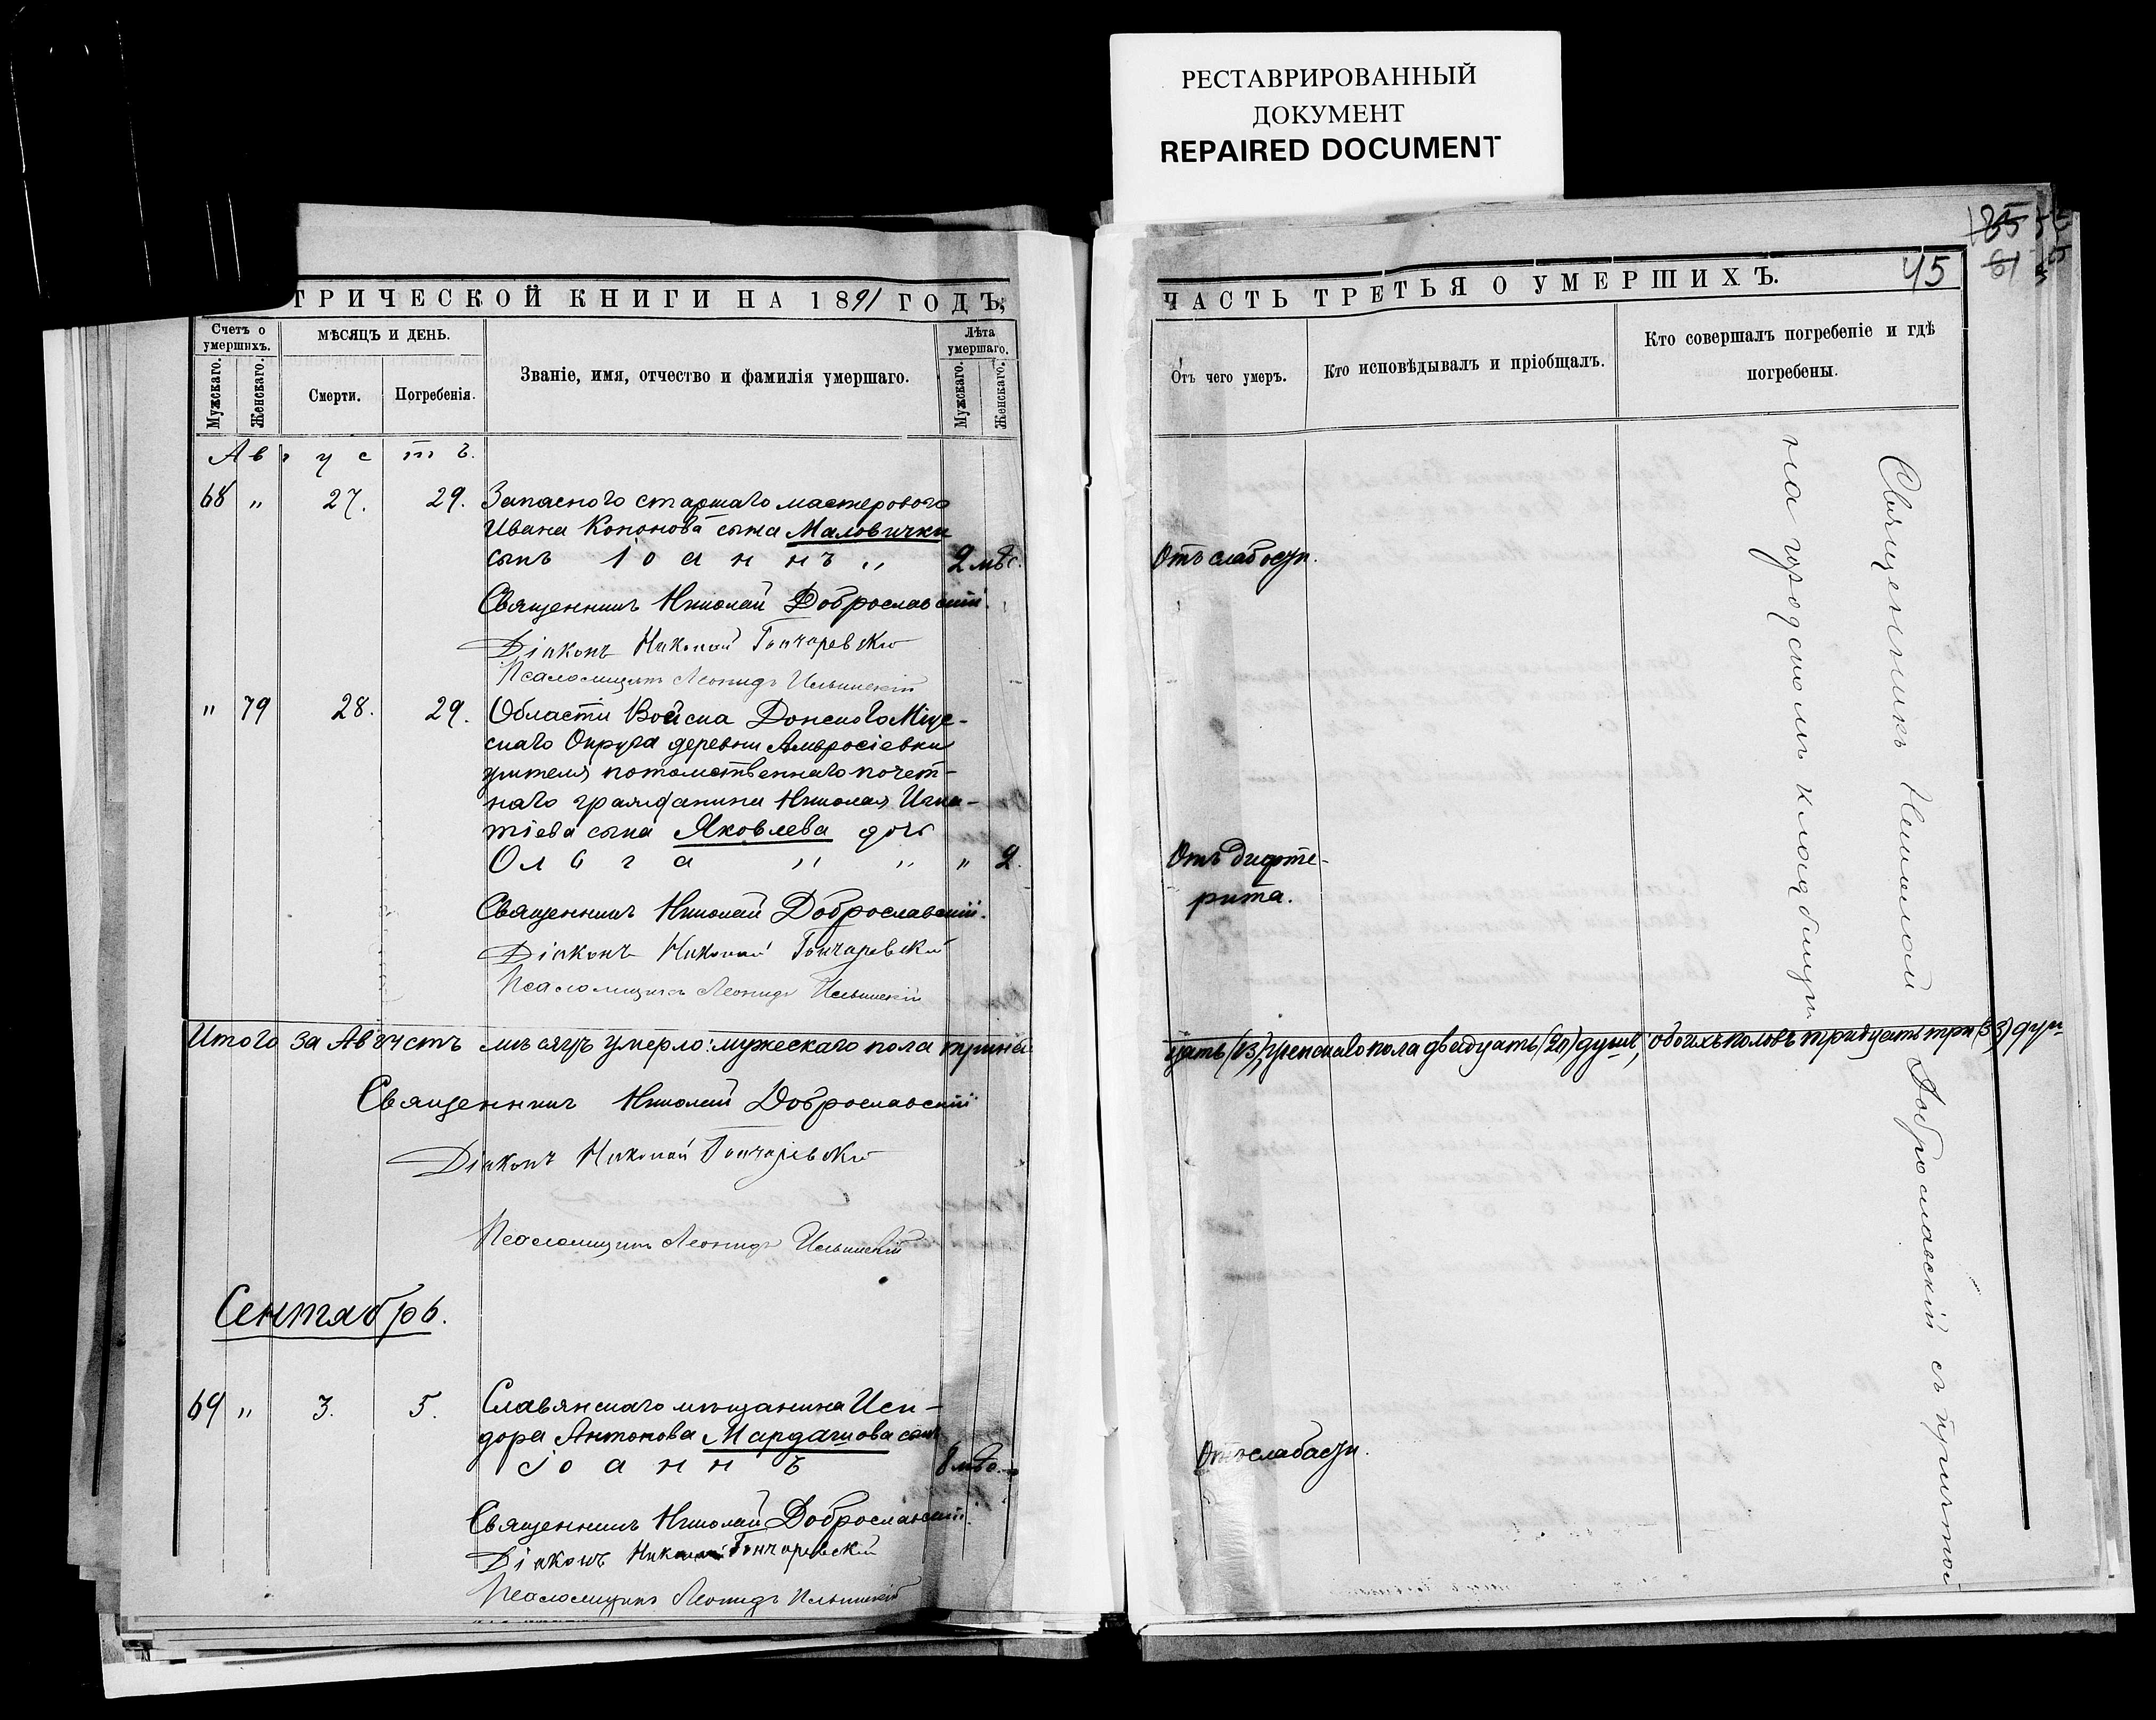 РЕСТАВРИРОВАННЫЙ
ДОКУМЕНТ
REPAIRED DOCUMENT
ТРИЧЕСКОЙ КНИГИ НА 1891 ГОДЪ,
Счетъ о умершихъ.
Мужскаго.
Женскаго.
МѢСЯЦЪ И ДЕНЬ.
Смерти.
Погребенія.
Званіе, имя, отчество и фамилія умершаго.
Лѣта умершаго.
Мужскаго.
Женскаго.
Августъ.
68 " 27. 29. Запаснаго старшаго мастероваго
Ивана Кононова сына Маловички
сынъ Іоаннъ " 2 мѣс.
Священникъ Николай Доброславскій.
Діаконъ Николай Гончаревскій
Псаломщикъ Леонидъ Ильинскій
" 79 28. 29. Области Войска Донскаго Міус-
скаго Округа деревни Амвросіевки
учителя потомственнаго почет-
наго гражданина Николая Игна-
тіева сына Яковлева дочь
Ольга " " " 2.
Священникъ Николай Доброславскій.
Діаконъ Николай Гончаревскій
Псаломщикъ Леонидъ Ильинскій
Итого за Августъ мѣсяцъ умерло: мужескаго пола тринад-
Священникъ Николай Доброславскій
Діаконъ Николай Гончаревскій
Псаломщикъ Леонидъ Ильинскій
Сентябрь.
69 " 3. 5. Славянскаго мѣщанина Иси-
дора Антонова Мардашова сынъ
Іоаннъ 8 мѣс.
Священникъ Николай Доброславскій.
Діаконъ Николай Гончаревскій
Псаломщикъ Леонидъ Ильинскій
185
61
45
ЧАСТЬ ТРЕТЬЯ О УМЕРШИХЪ.
Отъ чего умеръ.
Кто исповѣдывалъ и пріобщалъ.
Кто совершалъ погребеніе и гдѣ
погребены.
Отъ слабости.
Отъ дифте-
рита.
цать (13), женскаго пола двадцать (20) душъ, обоихъ половъ тридцать три (33) душ
Отъ слабости.
Священникъ Николай Доброславскій съ причтомъ
на городскомъ кладбищѣ